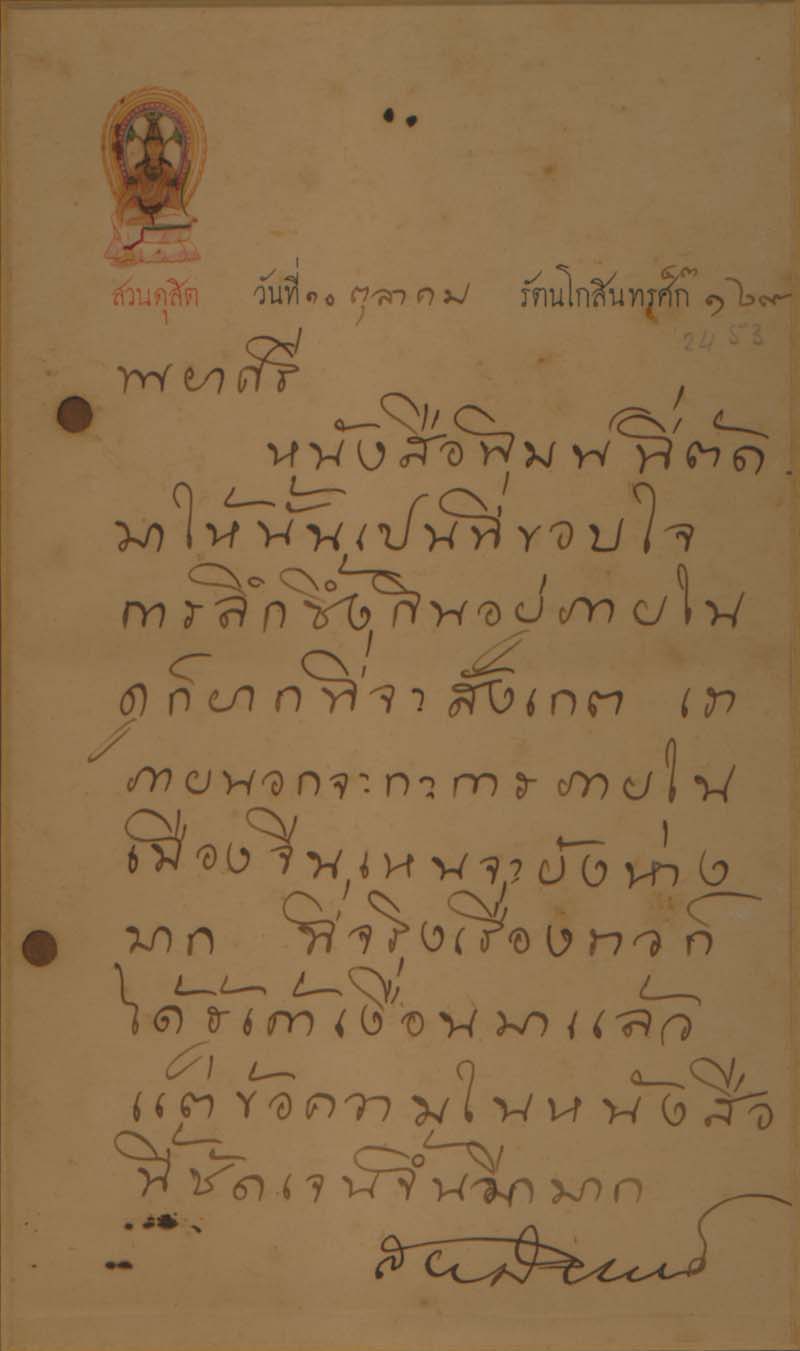 สวนดุสิต วันที่ ๑๐ ตุลาคม รัตนโกสินทรศ๊ก ๑๒๙
2453
พยาศรี
หนังสือพิมพ์ที่ตัด
มาให้นั้นเปนที่ขอบใจ
การลึกซึ้ง อยู่ภายใน
ก็ยากที่จะสังเกต
ภายนอกจะกะการภายใน
เมืองจีนเหนจะยังห่าง
มาก ที่จริงเรื่องราวก็
ได้รู้เค้าเงื่อนมาแล้ว
แต่ข้อความในหนังสือ
นี้ชัดเจนขึ้นอีกมาก